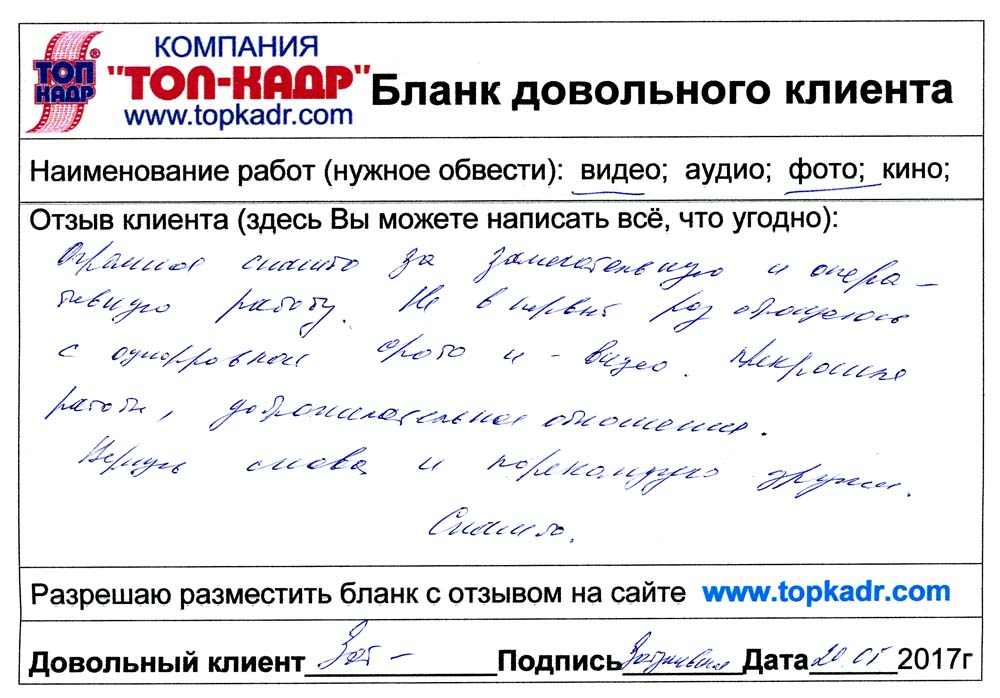 ТОП КАДР ®
КОМПАНИЯ
"ТОП-КАДР"
www.topkadr.com
Бланк довольного клиента
Наименование работ (нужное обвести): видео; аудио; фото; кино;
Отзыв клиента (здесь Вы можете написать всё, что угодно):
Огромное спасибо за замечательную и опера-
тивную работу. Не в первый раз обращаюсь
с оцифровкой фото и - видео. Прекрасная
работа, доброжелательное отношение.
Вернусь снова и порекомендую друзьям.
Спасибо.
Разрешаю разместить бланк с отзывом на сайте www.topkadr.com
Довольный клиент Подпись Дата 20.05 2017г